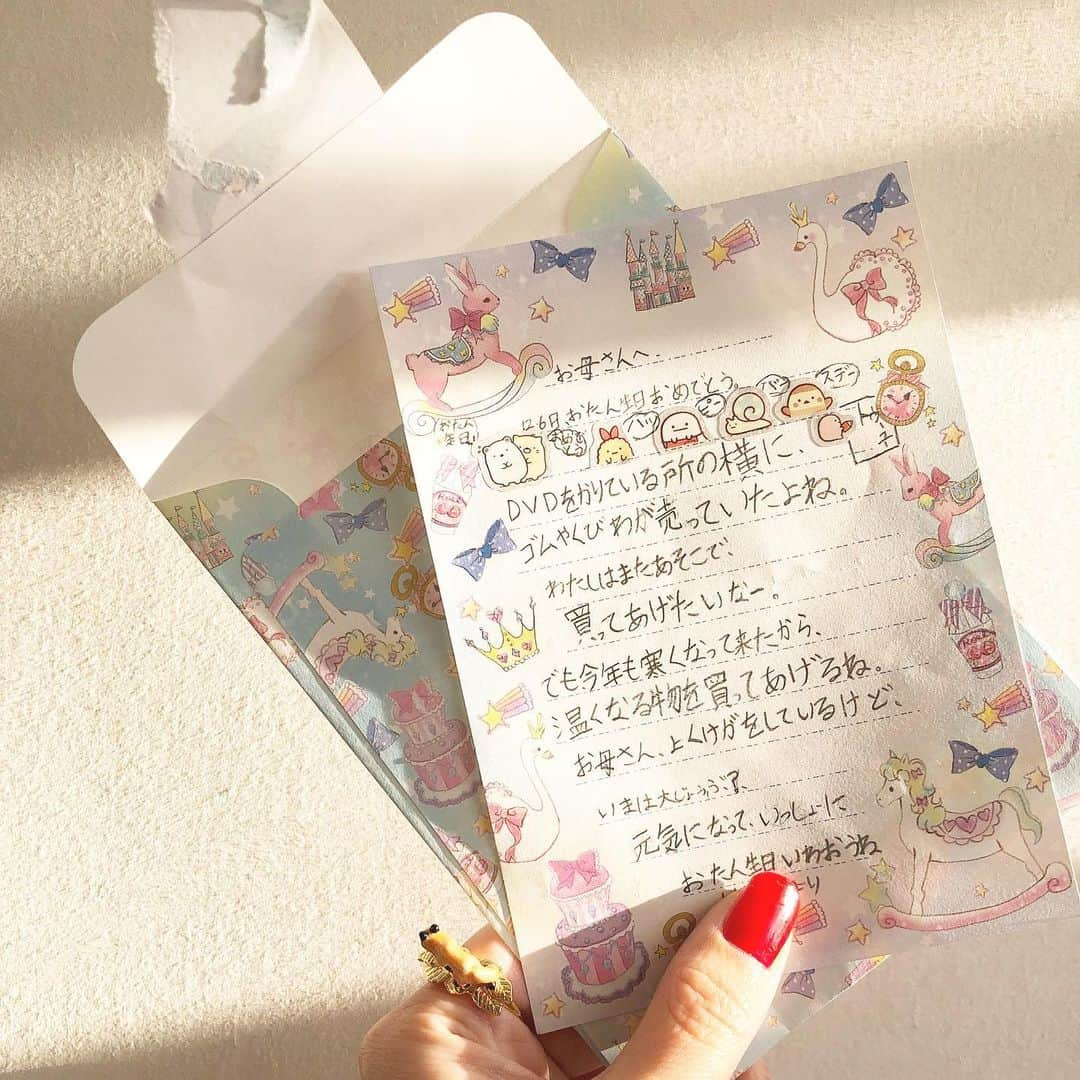 お母さんへ
12月6日、おたん生日おめでとう。
おたん
生日!!
ハッ
ピー
バー
スデ
トゥー
DVDをかりている所の横に、
ゴムやくびわが売っていたよね。
わたしはまたあそこで、
買ってあげたいなー。
でも今年も寒くなって来たから、
温くなる物を買ってあげるね。
お母さん、よくけがをしているけど、
いまは大じょうぶ?
元気になって、いっしょに
おたん生日いわおうね
より